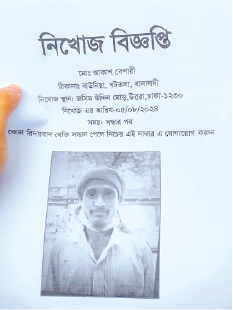 নিখোজ বিজ্ঞপ্তি
মোঃ আকাশ বেপারী
ঠিকানাঃ বাউনিয়া, বটতলা, বাদালদী
নিখোজ স্থান: জসিম উদ্দিন মোড়,উত্তরা,ঢাকা-১২৩০
নিখোজ এর তারিখ-০৫/০৮/২০২৪
সময়: সন্ধার পর
কোন রিদয়বান বেক্তি সন্ধান পেলে নিচের এই নাম্বার এ যোগাযোগ করুন